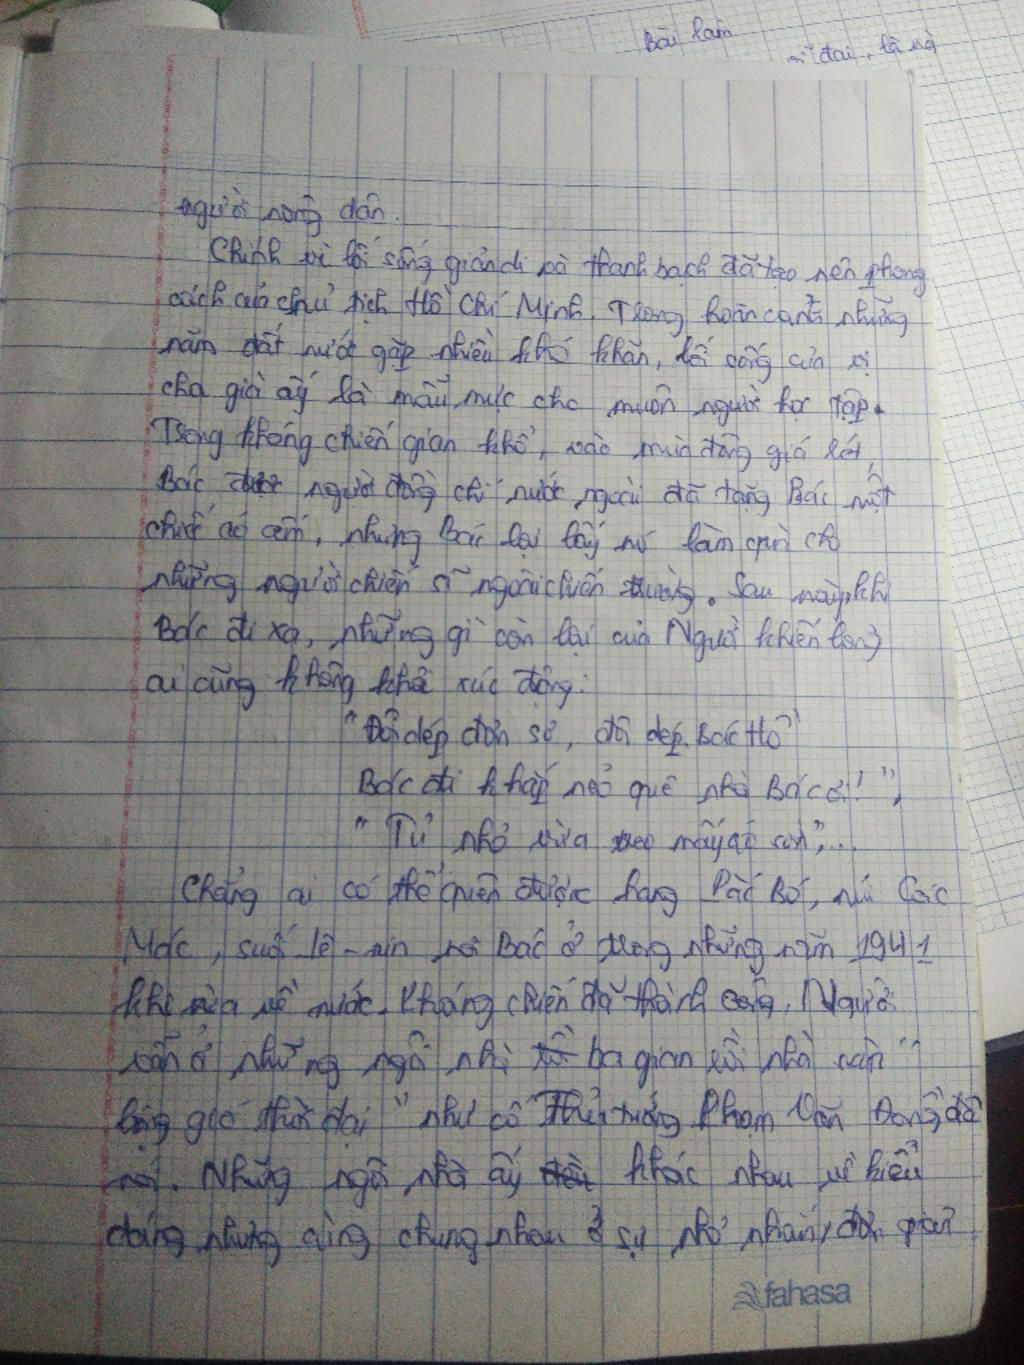 Bài làm
vĩ đại, là và
người nông dân.
Chính vì lối sống giản dị và thanh bạch đã tạo nên phong
cách của chủ tịch Hồ Chí Minh. Trong hoàn cảnh những
năm đất nước gặp nhiều khó khăn, lối sống của vị
cha già ấy là mẫu mực cho muôn người học tập.
Trong kháng chiến gian khổ, vào mùa đông giá rét,
Bác được người đồng chí nước ngoài đã tặng Bác một
chiếc áo ấm, nhưng Bác lại lấy nó làm quà cho
những người chiến sĩ ngoài chiến trường. Sau này, khi
Bác đi xa, những gì còn lại của Người khiến lòng
ai cũng không khỏi xúc động:
"Đôi dép đơn sơ, đôi dép Bác Hồ
Bác đi khắp nẻo quê nhà Bác ơi!",
"Tủ nhỏ vừa treo mấy áo sờn",...
Chẳng ai có thể quên được hang Pắc Bó, núi Các
Mác, suối Lê-nin nơi Bác ở trong những năm 1941
khi vừa về nước. Kháng chiến đã thành công, Người
vẫn ở những ngôi nhà ba gian rồi nhà sàn "
lộng gió thời đại" như cố Thủ tướng Phạm Văn Đồng đã
nói. Những ngôi nhà ấy khác nhau về kiểu
dáng nhưng cùng chung nhau ở sự nhỏ nhắn, đơn giản
fahasa